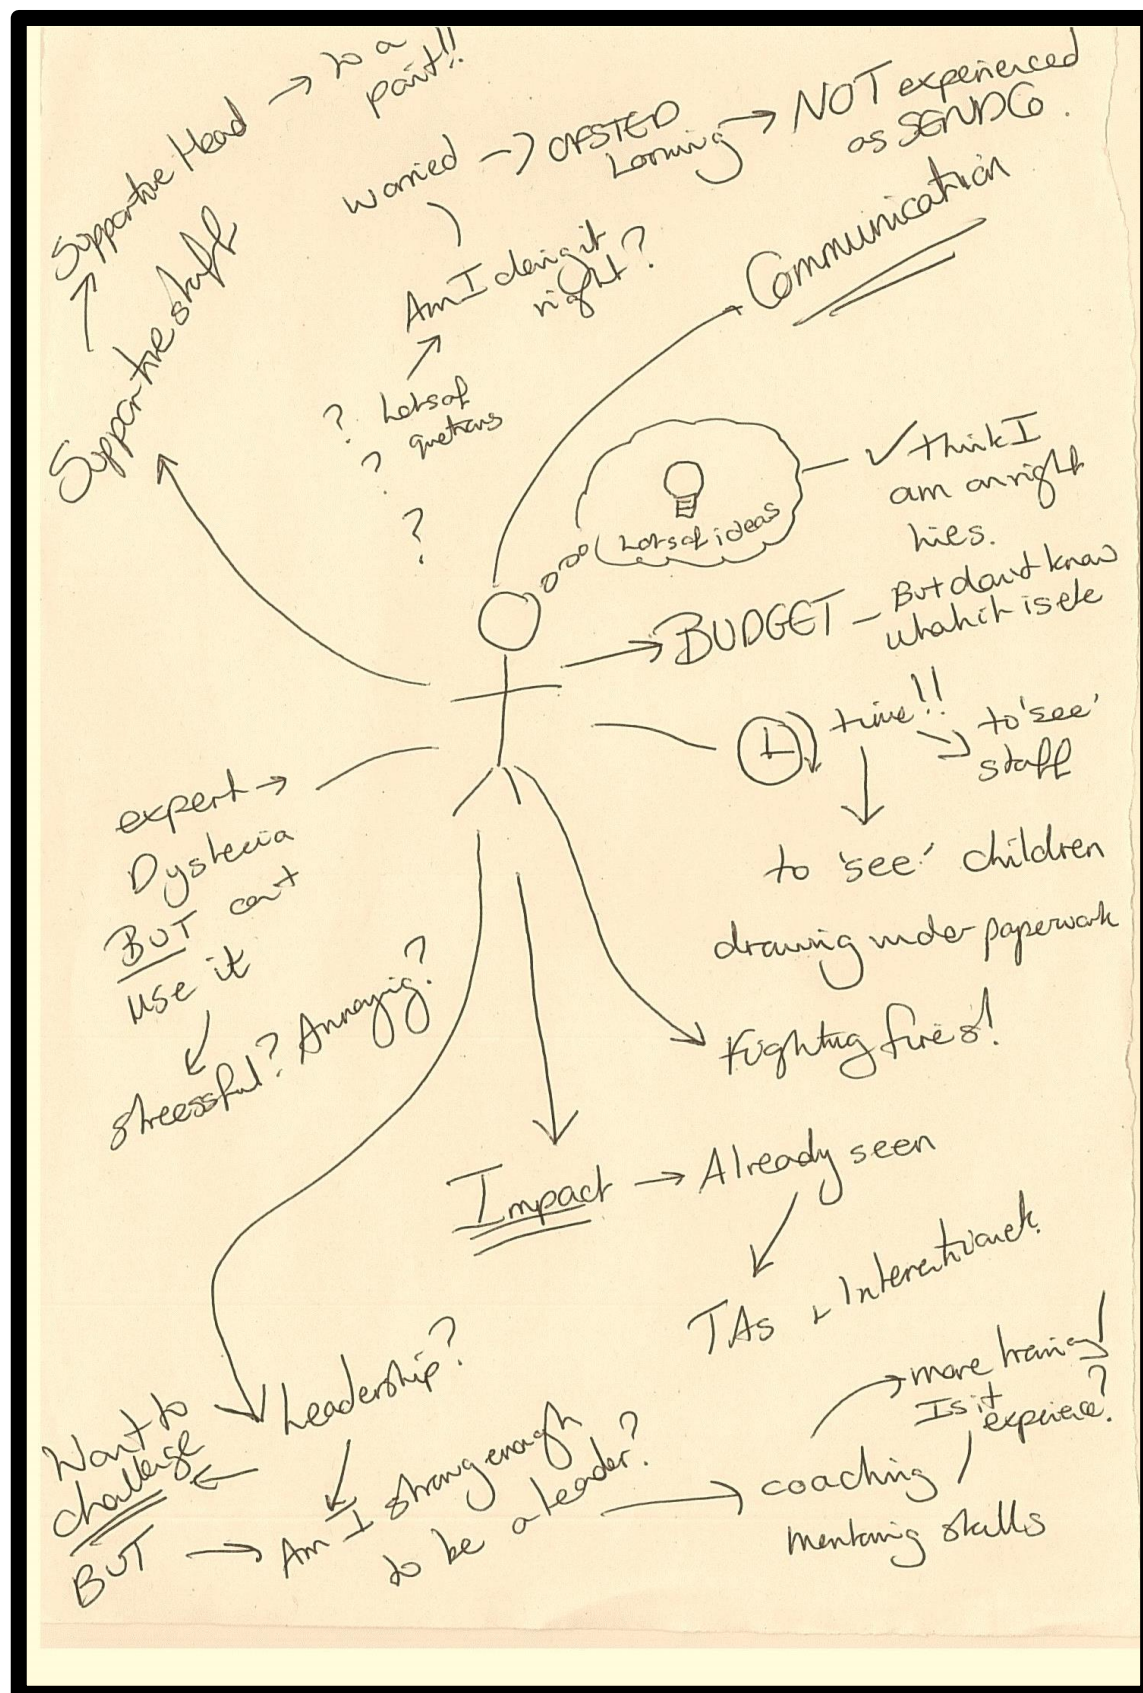 Supportive Head → to a
point!!
Supportive staff
worried → OFSTED
Looming → NOT experienced
as SENDCo.
Am I doing it
right?
? Lots of
? questions
?
Communication
Lots of ideas
✓ think I
am on right
lines.
BUDGET – But don't know
what it is
time!! → to 'see'
staff
to 'see' children
drowning under paperwork
Fighting fires!
expert →
Dyslexia
BUT can't
use it
stressful? Annoying?
Impact → Already seen
TAs +
Leadership?
Want to
challenge
BUT → Am I strong enough
to be a leader? → coaching
mentoring skills
more training!
Is it
experience?